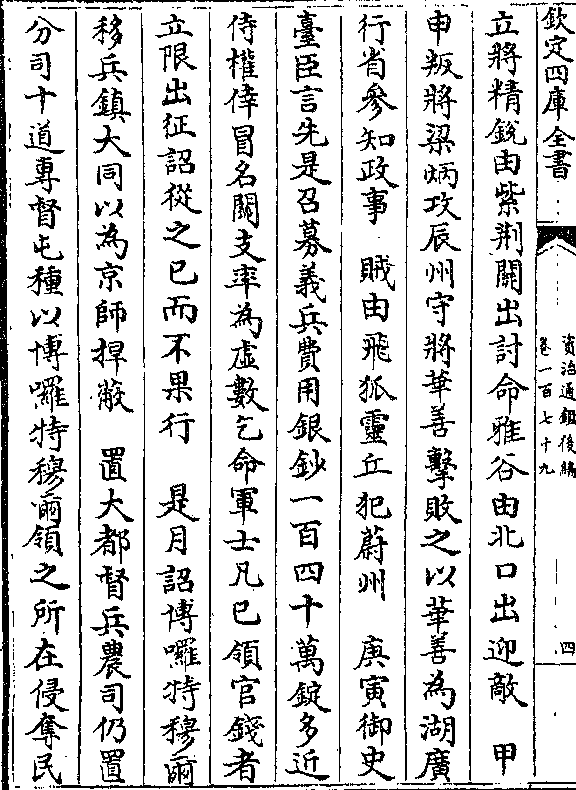 欽定四庫全書
資治通鑑後編
卷一百七十九
四
立將精銳由紫荆關出討命雅谷由北口出迎敵　甲
申叛將梁炳攻辰州守將華善擊敗之以華善為湖廣
行省參知政事　賊由飛狐靈丘犯蔚州　庚寅御史
臺臣言先是召募義兵費用銀鈔一百四十萬錠多近
侍權倖冒名關支率為虛數乞命軍士凡已領官錢者
立限出征詔從之已而不果行　是月詔博囉特穆爾
移兵鎮大同以為京師捍蔽　置大都督兵農司仍置
分司十道專督屯種以博囉特穆爾領之所在侵奪民